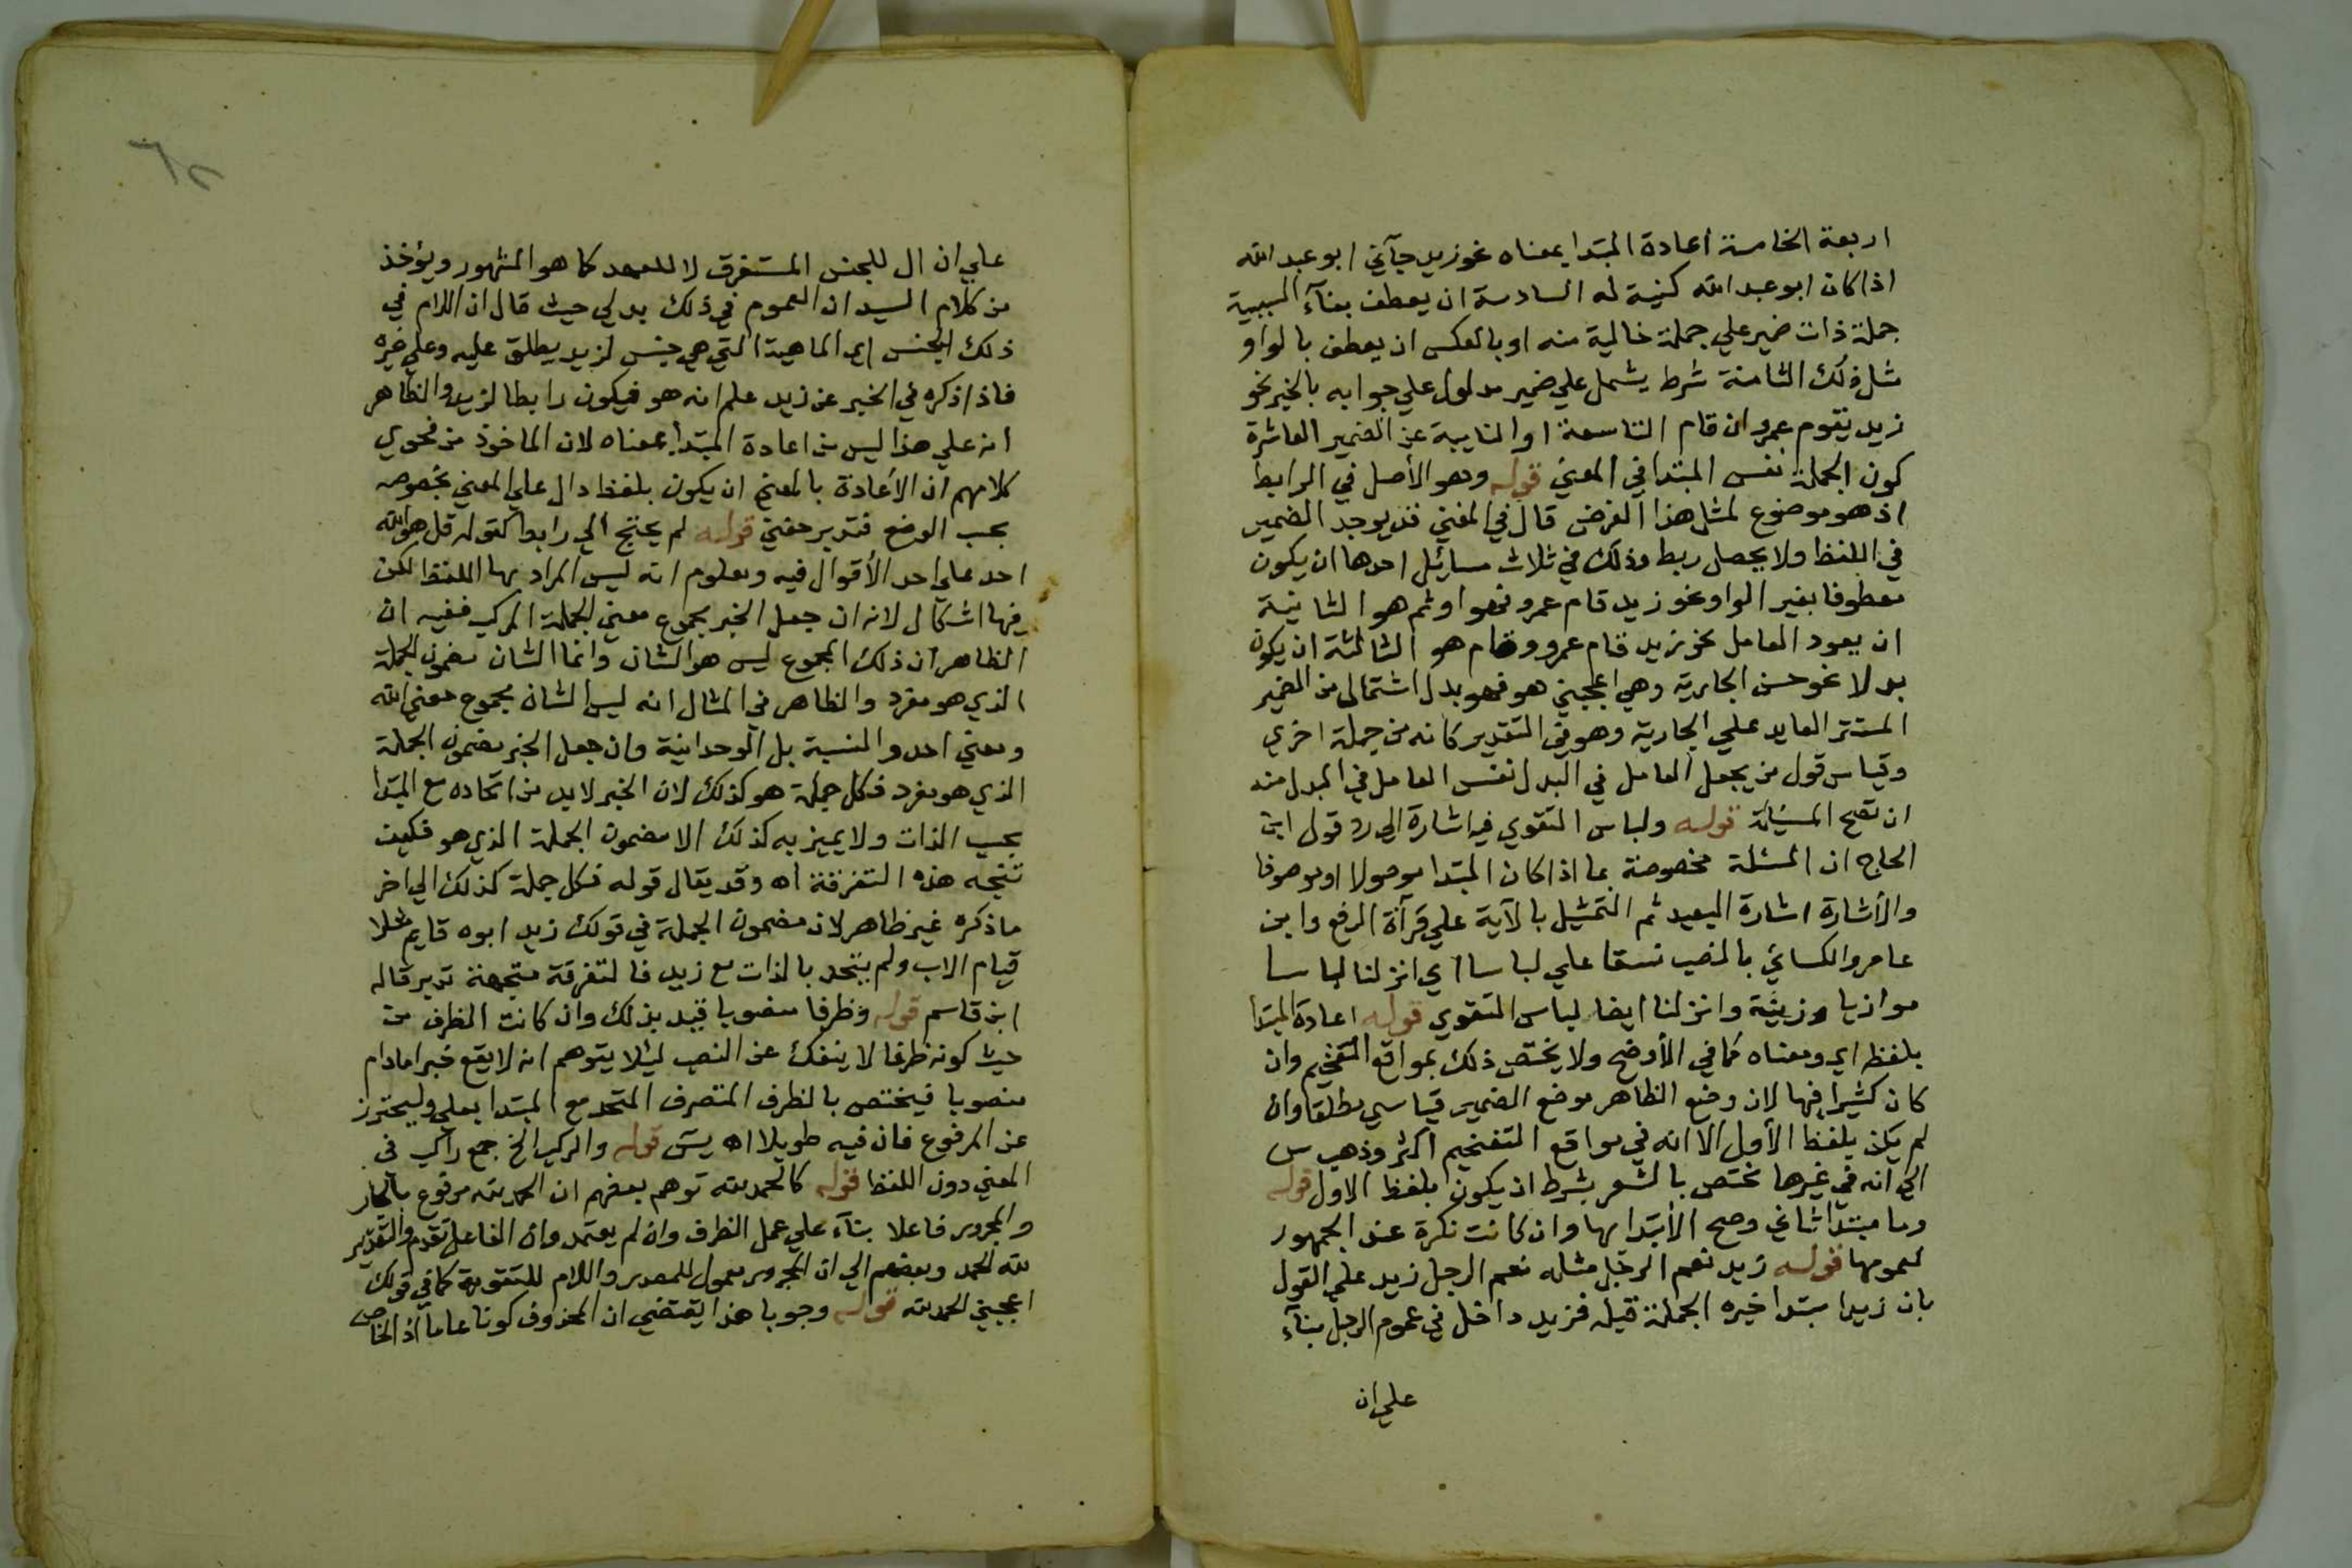 اربعة الخامسة اعادة المبتدا بمعناه نحو زيد جآني ابو عبد الله
اذا كان ابو عبد الله كنية له السادسة ان يعطف بفآء السببية
جملة ذات ضمير علي جملة خالية منه او بالعكس ان يعطف بالواو
مثل ذلك الثامنة شرط يشمل علي ضمير مدلول علي جوابه بالخبر نحو
زيد يقوم عمرو ان قام التاسعة او النايبة عن الضمير العاشرة
كون الجملة نفس المبتدا في المعني قوله وهو الأصل في الرابط
اذ هو موضوع لمثل هذا الغرض قال في المغني قد يوجد الضمير
في اللفظ ولا يحصل ربط وذلك في ثلاث مسائل احدها ان يكون
معطوفا بغير الواو نحو زيد قام عمرو فهو او ثم هو الثانية
ان يعود العامل نحو زيد قام عمرو وقام هو الثالثة ان يكون
بدلا نحو حسن الجارية وهي اعجبني هو فهو بدل اشتمال من الضمير
المستتر العايد علي الجارية وهو في التقدير كانه من جملة اخري
وقياس قول من يجعل العامل في البدل نفس العامل في المبدل منه
ان تصح المسئلة قوله ولباس التقوي فيه اشارة الي رد قول ابن
الحاج ان المسئلة مخصوصة بما اذا كان المبتدا موصولا او موصوفا
والأشارة اشارة البعيد ثم التمثيل بالآية علي قرآة الرفع وابن
عامر والكسائي بالنصب نسقا علي لباسا اي انزلنا لباسا
مواريا وزينة وانزلنا ايضا لباس التقوي قوله اعادة المبتدا
بلفظ اي ومعناه كما في الأوضح ولا يختص ذلك بمواقع التفخيم وان
كان كثيرا فيها لان وضع الظاهر موضع الضمير قياسي مطلقا وان
لم يكن بلفظ الأول الا انه في مواقع التفخيم اكثر وذهب س
الي انه في غيرها مختص بالشعر بشرط ان يكون بلفظ الاول قوله
وما مبتدا ثاني وصح الأبتدا بها وان كانت نكرة عند الجمهور
لعمومها قوله زيد نعم الرجل مثله نعم الرجل زيد علي القول
بان زيدا مبتدا خبره الجملة قبله فزيد داخل في عموم الرجل بنآء
علي ان
علي ان ال للجنس المستغرق لا للعهد كما هو المشهور ويؤخذ
من كلام السيد ان العموم في ذلك بدلي حيث قال ان اللام في
ذلك الجنس اي الماهية التي هي جنس لزيد يطلق عليه وعلي غيره
فاذا ذكره في الخبر عن زيد علم انه هو فيكون رابطا لزيد والظاهر
انه علي هذا ليس من اعادة المبتدا بمعناه لان الماخوذ من فحوي
كلامهم ان الأعادة بالمعني ان يكون بلفظ دال علي المعني بخصوصه
بحسب الوضع فتدبر حفني قوله لم يحتج الي رابط كقوله قل هو الله
احد علي احد الأقوال فيه ومعلوم انه ليس المراد بها اللفظ لكن
فيها اشكال لانه ان جعل الخبر مجموع معني الجملة المركب ففيه ان
الظاهر ان ذلك المجموع ليس هو الشان وانما الشان مضمون الجملة
الذي هو مفرد والظاهر في المثال انه ليس الشان مجموع معني الله
ومعني احد والنسبة بل الوحدانية وان جعل الخبر مضمون الجملة
الذي هو مفرد فكل جملة هو كذلك لان الخبر لابد من اتحاده مع المبتدا
بحسب الذات ولا يميز به كذلك الا مضمون الجملة الذي هو فكيف
تتجه هذه التفرقة اه وقد يقال قوله فكل جملة كذلك الي اخر
ما ذكره غير ظاهر لان مضمون الجملة في قولك زيد ابوه قايم مثلا
قيام الاب ولم يتحد بالذات مع زيد فالتفرقة متجهة تدبر قاله
ابن قاسم قوله وظرفا منصوبا قيد بذلك وان كانت الظرف من
حيث كونه ظرفا لا ينفك عن النصب ليئلا يتوهم انه لا يقع خبرا مادام
منصوبا فيختص بالظرف المتصرف المتحد مع المبتدا بعلي وليحترز
عن المرفوع فان فيه طويلا اه يسَ قوله والركب الخ جمع راكب في
المعني دون اللفظ قوله كالحمد لله توهم بعضهم ان الحمد لله مرفوع بالجار
والمجرور فاعلا بنآء علي عمل الظرف وان لم يعتمد وان الفاعل تقدم والتقدير
لله الحمد وبعضهم الي ان المجرور معمول للمصدر واللام للتقوية كما في قولك
اعجبني الحمد لله قوله وجوبا هذا يقتضي ان المحذوف كونا عاما اذ الخاص